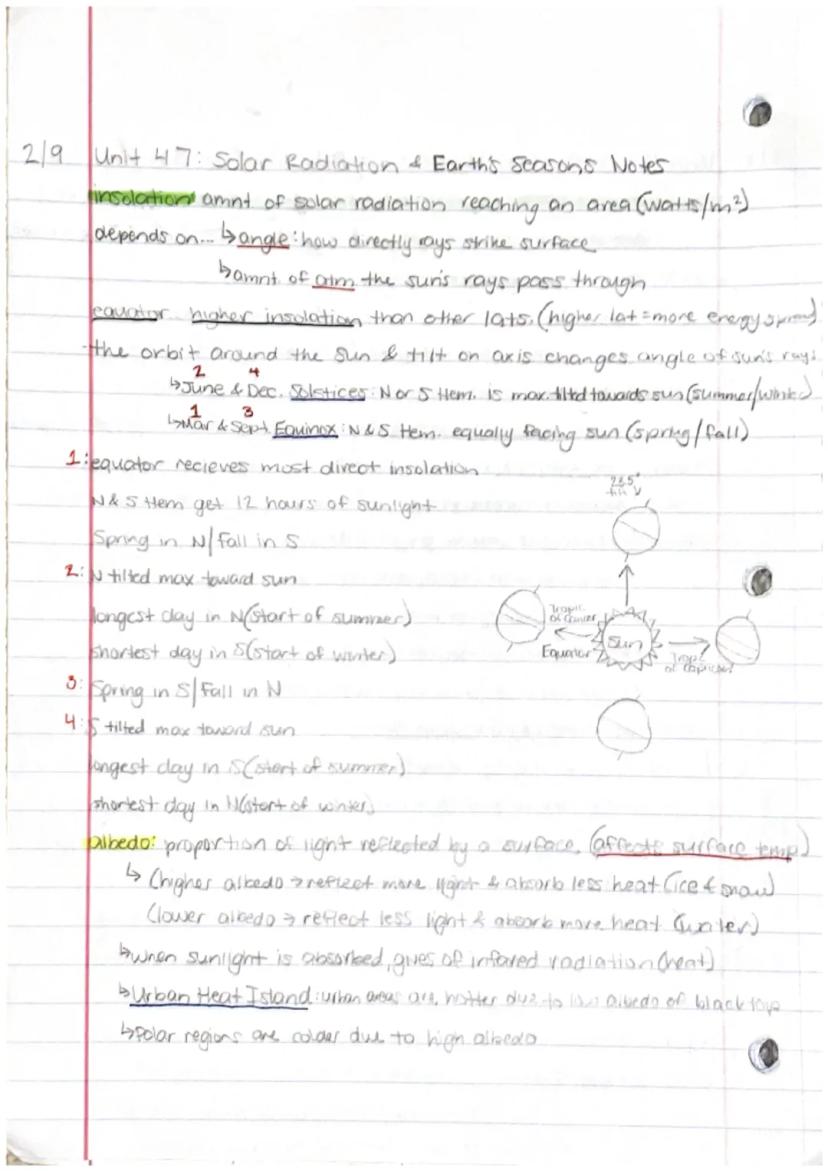 2/9 Unit 47: Solar Radiation & Earth's Seasons Notes
insolation amnt of solar radiation reaching an area (watts/m²)
depends on... ↳angle: how directly rays strike surface
↳amnt of atm the sun's rays pass through
equator higher insolation than other lats. (higher lat=more energy spread)
the orbit around the sun & tilt on axis changes angle of sun's rays
2 4
↳June & Dec. Solstices: N or S Hem. is max. tilted towards sun (summer/winter)
1 3
↳Mar & Sept. Equinox: N & S Hem. equally facing sun (spring/fall)
1: equator recieves most direct insolation
N & S Hem get 12 hours of sunlight
Spring in N/fall in S
2: N tilted max toward sun
longest day in N (start of summer)
shortest day in S (start of winter)
3: Spring in S/Fall in N
4: S tilted max toward sun
longest day in S (start of summer)
shortest day in N (start of winter)
23.5°
tilt
Tropic
of Cancer
Equator
Sun
Tropic
of Capricorn
albedo: proportion of light reflected by a surface (affects surface temp)
↳ (higher albedo → reflect more light & absorb less heat (ice & snow)
(lower albedo → reflect less light & absorb more heat (water)
↳when sunlight is absorbed, gives of infared radiation (heat)
↳Urban Heat Island: urban areas are hotter due to low albedo of black tops
↳Polar regions are colder due to high albedo